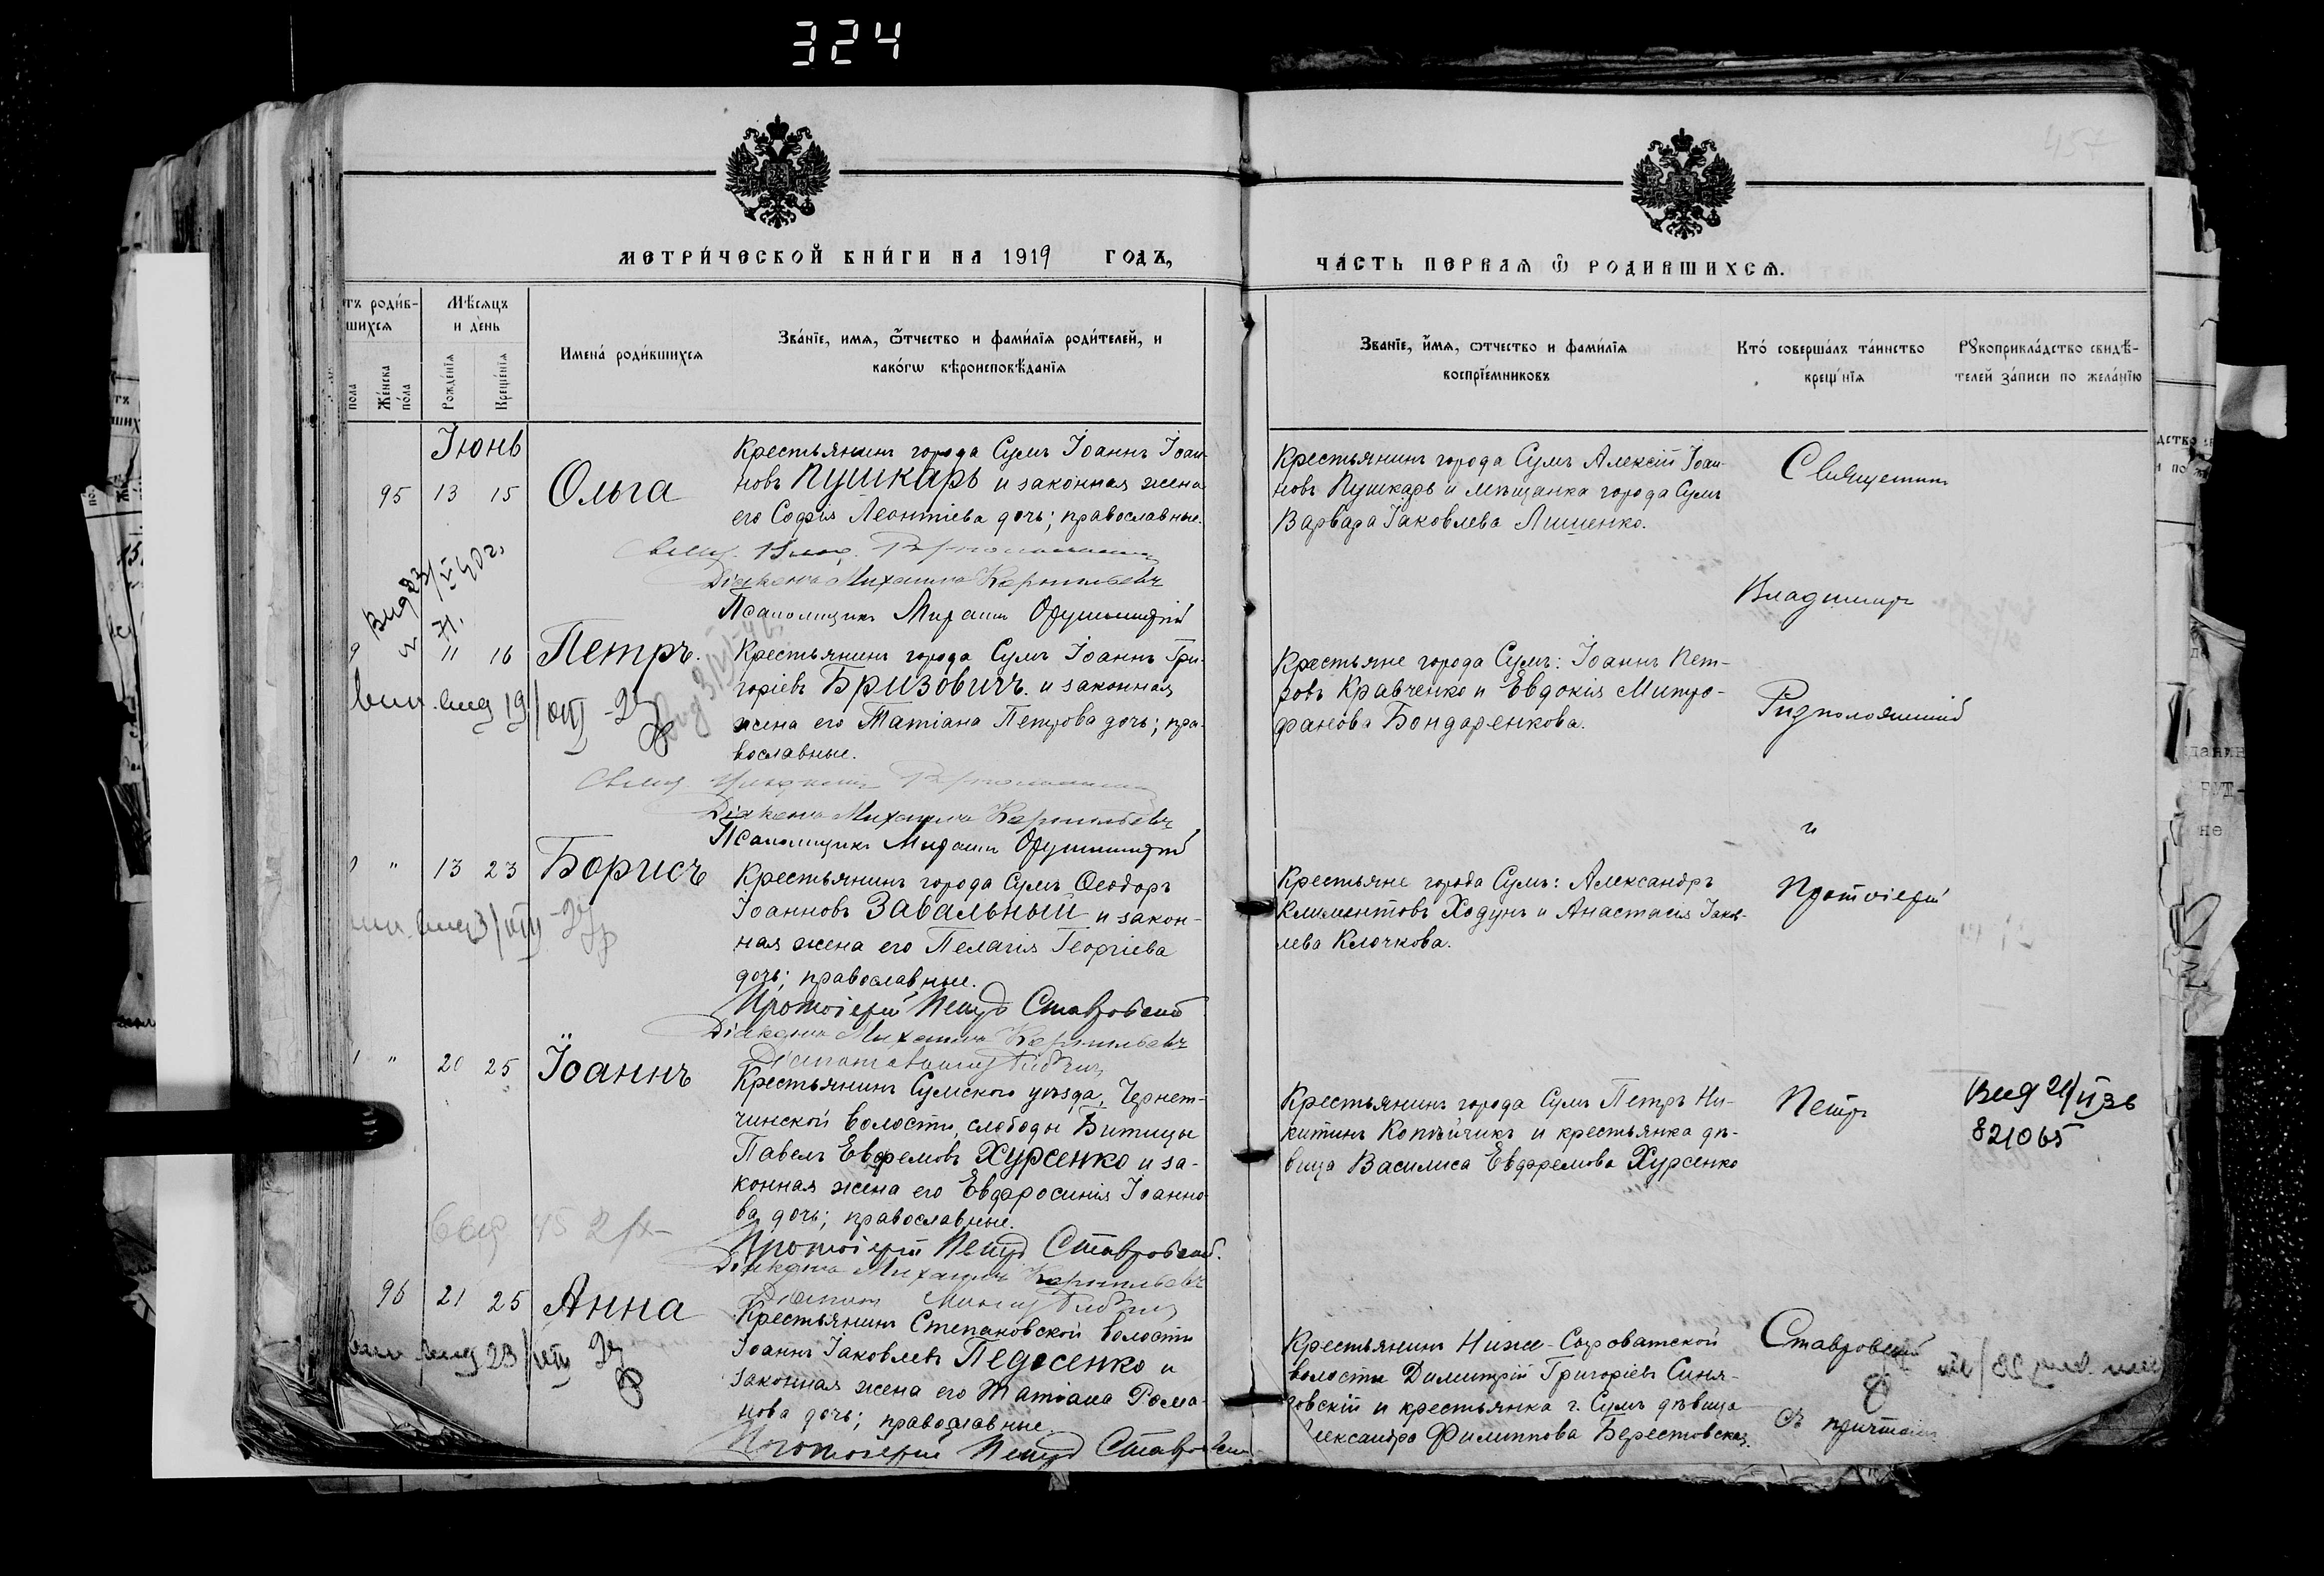 324
457
метри́ческой кни́ги на 1919 годъ,
ча́сть пе́рваѧ ѿ роди́вшихсѧ.
тъ роди́в-
шихсѧ
Мѣ́сѧцъ
и де́нь
пола
Же́нска
по́ла
Рожде́нїѧ
Креще́нїѧ
Имена̀ роди́вшихсѧ
Зва́нїе, имѧ, ѿтчество и фами́лїѧ роди́телей, и
како́гѡ вѣроисповѣ́данїѧ
Зва́нїе, и́мѧ, ѿтчество и фами́лїѧ
воспрїе́мниковъ
Кто́ соверша́лъ та́инство
креще́нїѧ
Рꙋкоприкла́дство свидѣ́-
телей за́писи по жела́нїю
Іюнь
95 13 15 Ольга
Крестьянинъ города Сумъ Іоаннъ Іоан-
новъ Пушкарь и законная жена
его Софія Леонтіева дочь; православные.
Діаконъ Михаилъ Корнильевъ
Псаломщикъ
Крестьянинъ города Сумъ Алексій Іоан-
новъ Пушкарь и мѣщанка города Сумъ
Варвара Іаковлева Лишенко.
Священникъ
Владиміръ
Вид 23/V 40 г.
11 16 Петръ.
Крестьянинъ города Сумъ Іоаннъ Гри-
горіевъ Бризовичъ и законная
жена его Татіана Петрова дочь; пра-
вославные.
Діаконъ Михаилъ Корнильевъ
Псаломщикъ
Крестьяне города Сумъ: Іоаннъ Пет-
ровъ Кравченко и Евдокія Митро-
фанова Бондаренкова.
Ризположенскій
и
" 13 23 Борисъ
Крестьянинъ города Сумъ Ѳеодоръ
Іоанновъ Завальный и закон-
ная жена его Пелагія Георгіева
дочь; православные.
Протоіерей Петръ Ставровскій
Діаконъ Михаилъ Корнильевъ
Крестьяне города Сумъ: Александръ
Климентовъ Ходунъ и Анастасія Іаков-
лева Клочкова.
Протоіерей
" 20 25 Іоаннъ
Крестьянинъ Сумского уѣзда, Чернет-
чинской волости, слободы Битицы
Павелъ Евфремовъ Хурсенко и за-
конная жена его Евфросинія Іоанно-
ва дочь; православные.
Протоіерей Петръ Ставровскій.
Діаконъ Михаилъ Корнильевъ
Крестьянинъ города Сумъ Петръ Ни-
китинъ Копѣйчикъ и крестьянка дѣ-
вица Василиса Евфремова Хурсенко
Петръ
Вид 21/II 36
821065
96 21 25 Анна
Крестьянинъ Степановской волости
Іоаннъ Іаковлевъ Педосенко и
законная жена его Татіана Рома-
нова дочь; православные
Протоіерей Петръ Ставровскій
Крестьянинъ Ниже-Сыроватской
волости Димитрій Григоріевъ Синя-
говскій и крестьянка г. Сумъ дѣвица
Александра Филиппова Берестовская.
Ставровскій
съ причтомъ